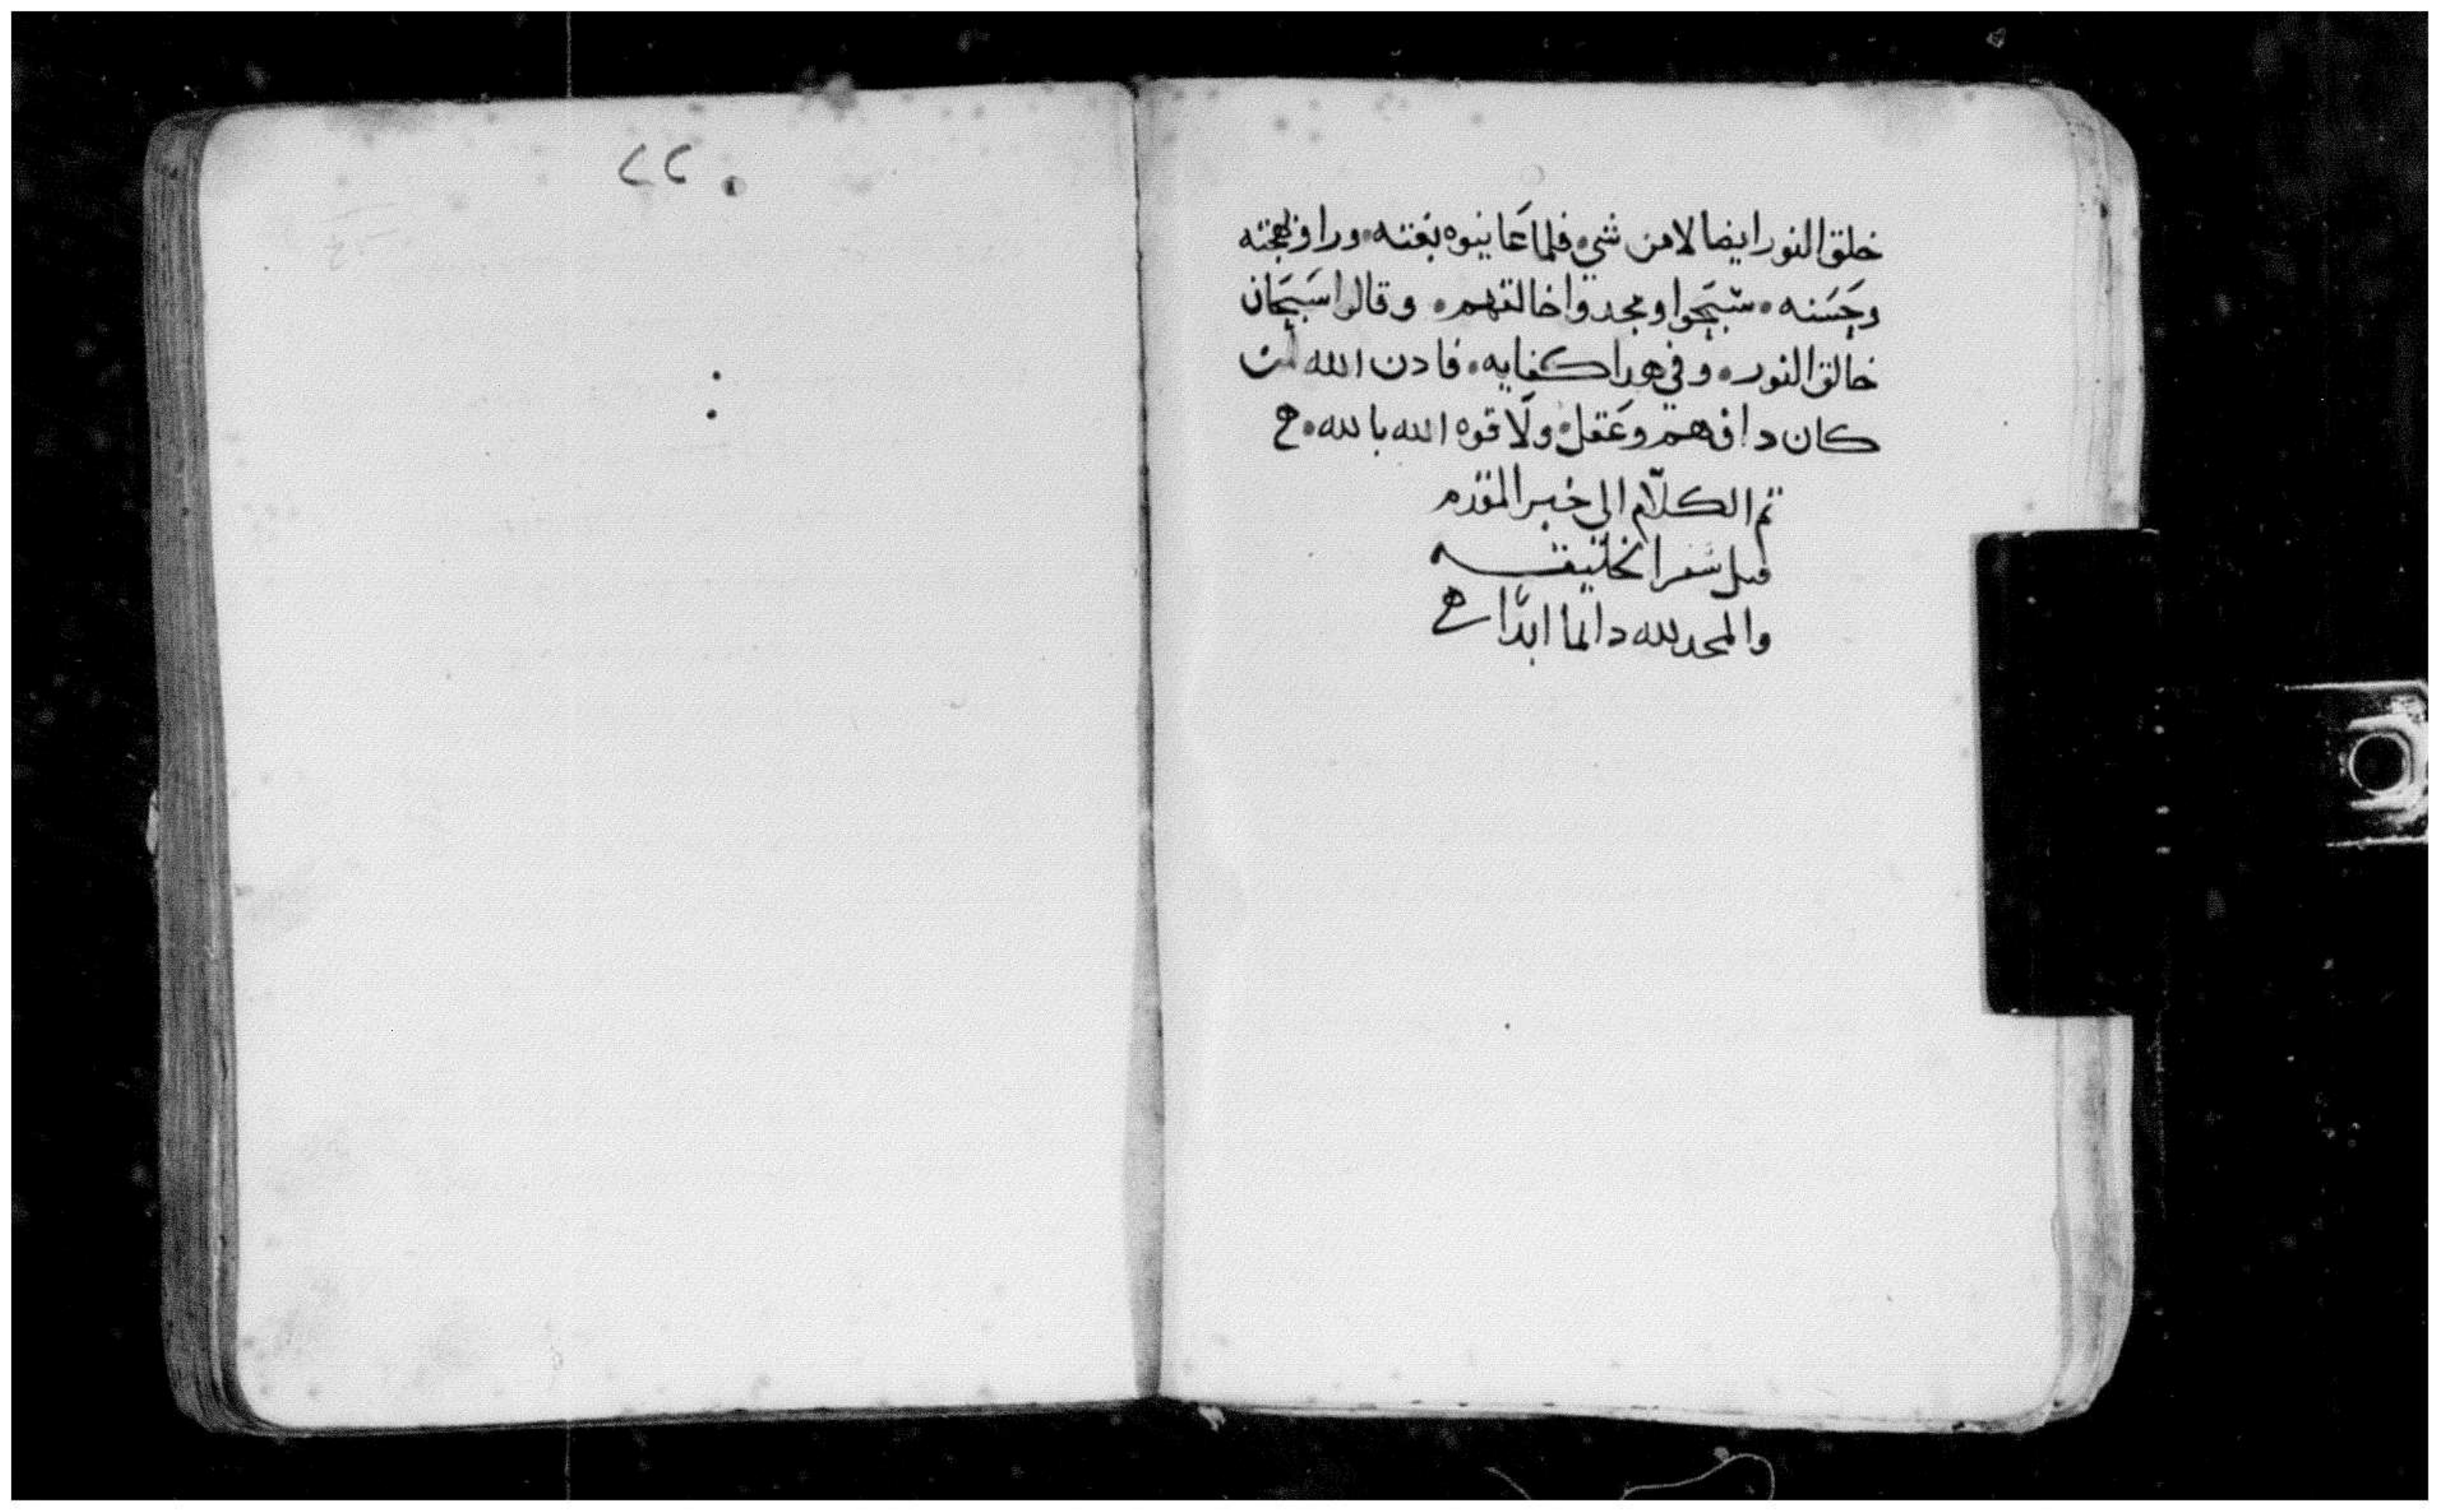 خلق النور ايضا لا من شي. فلما عاينوه بغته. وراو بهجته
وحسنه. سبحوا ومجدوا خالقهم. وقالوا سبحان
خالق النور. وفي هدا كفايه. فادن الله لمن
كان دا فهم وعقل. ولا قوه الله بالله.
تم الكلام الي خبر المقدم
قبل سفر الخليقه
والمجد لله دالما ابدا